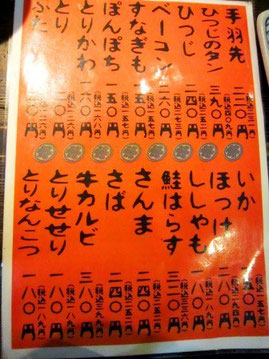 手羽先
ひつじのタン 三九〇円 (税込四〇九円)
ひつじ 二四〇円 (税込二五二円)
ベーコン 二六〇円 (税込二七三円)
すなぎも
ぽんぽち
とりかわ
とり
ぶた
いか 一五〇円 (税込一五七円)
ほっけ 二八〇円 (税込二九四円)
ししゃも 一八〇円 (税込一八九円)
鮭はらす 三二〇円
さんま 二四〇円 (税込二五二円)
さば 二四〇円 (税込二五二円)
牛カルビ 三八〇円 (税込三九九円)
とりせせり 一八〇円 (税込一八九円)
とりなんこつ 一八〇円 (税込一八九円)